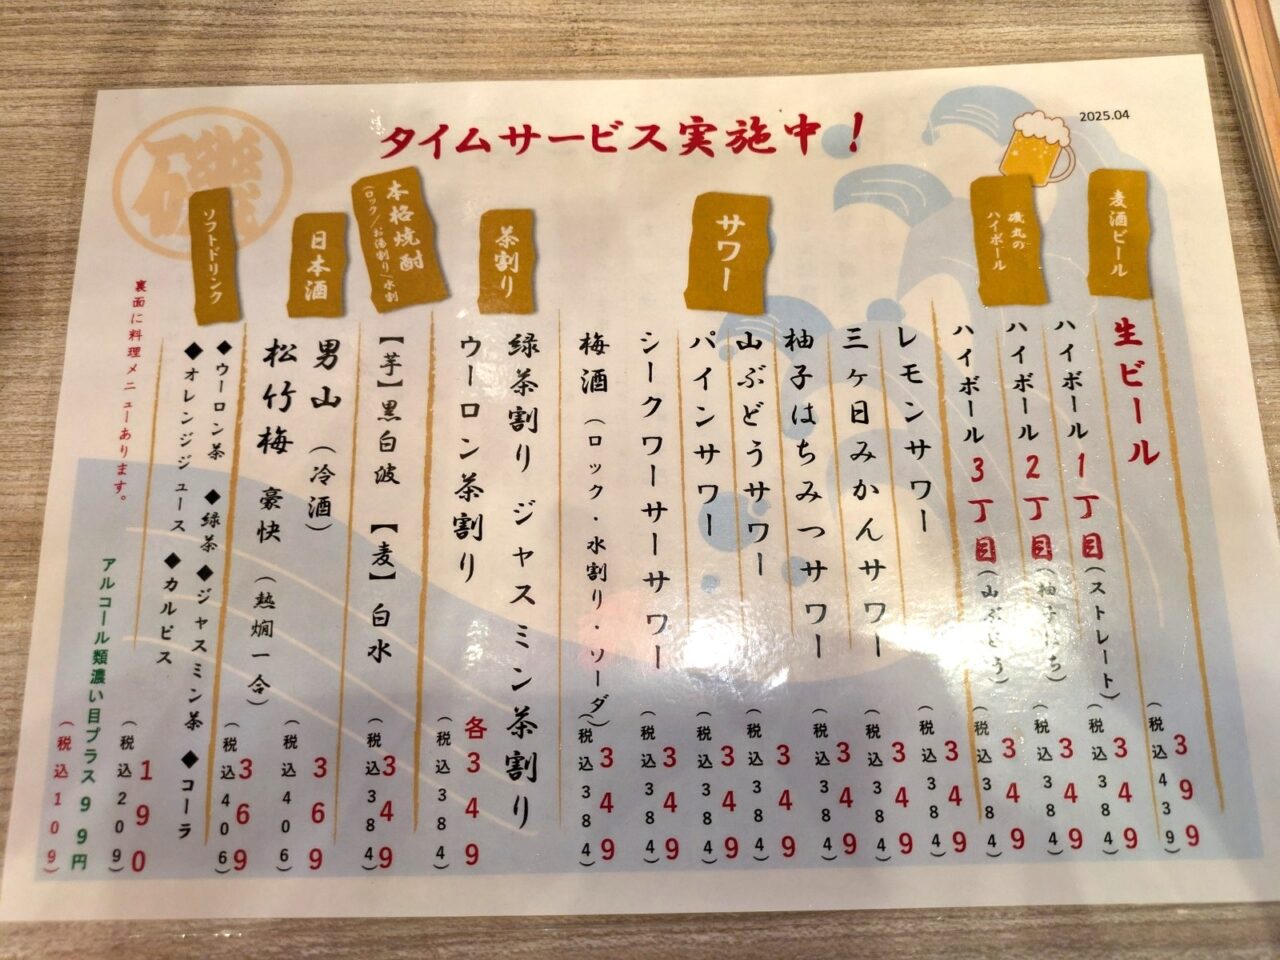 2025.04
タイムサービス実施中！
磯
麦酒ビール
生ビール
399
（税込439）
磯丸の
ハイボール
ハイボール1丁目（ストレート）
349
（税込384）
ハイボール2丁目（柚子はち）
349
（税込384）
ハイボール3丁目（山ぶどう）
349
（税込384）
サワー
レモンサワー
349
（税込384）
三ケ日みかんサワー
349
（税込384）
柚子はちみつサワー
349
（税込384）
山ぶどうサワー
349
（税込384）
パインサワー
349
（税込384）
シークワーサーサワー
349
（税込384）
梅酒（ロック・水割り・ソーダ）
349
（税込384）
茶割り
緑茶割り ジャスミン茶割り
ウーロン茶割り
各349
（税込384）
本格焼酎
（ロック/お湯割り/水割）
【芋】黒白波 【麦】白水
349
（税込384）
日本酒
男山（冷酒）
369
（税込406）
松竹梅 豪快（熱燗一合）
369
（税込406）
ソフトドリンク
◆ウーロン茶 ◆緑茶 ◆ジャスミン茶 ◆コーラ
◆オレンジジュース ◆カルピス
190
（税込209）
裏面に料理メニューあります。
アルコール類濃い目プラス99円
（税込109）